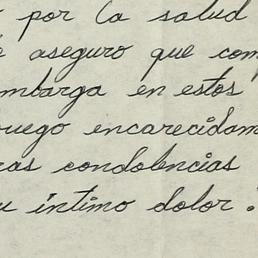 por la salud
aseguro que com
embarga en estos
ruego encarecidam
ras condolencias
u íntimo dolor.